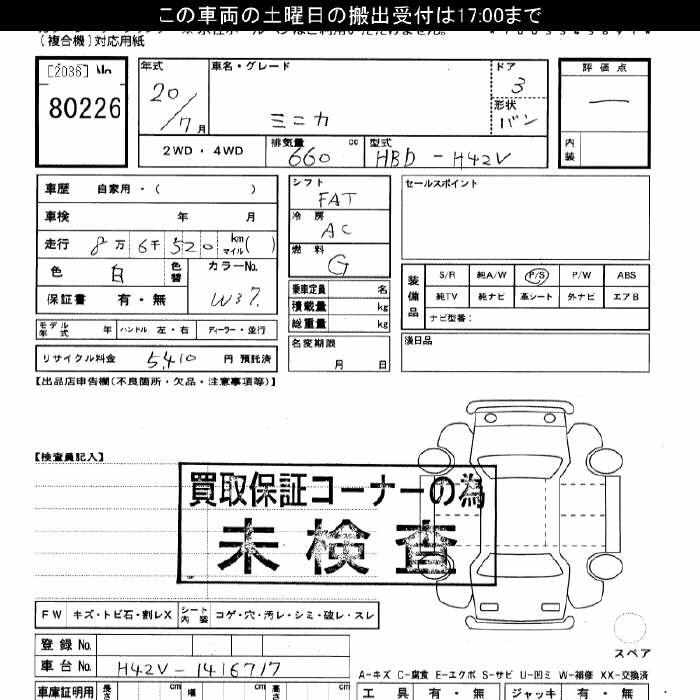 この車両の土曜日の搬出受付は17:00まで
(複合機)対応用紙
[2036] No
80226
年式
20/7月
車名・グレード
ミニカ
ドア
3
形状
バン
評価点
一
内装
2WD・4WD
排気量
660 cc
型式
HBD-H42V
車歴 自家用・( )
車検 年 月
走行 8万6千520 km マイル( )
色 白 色替
カラーNo.
W37.
保証書 有・無
モデル年式 年 ハンドル 左・右 ディーラー・並行
リサイクル料金 5,410 円 預託済
シフト
FAT
冷房
AC
燃料
G
乗車定員 名
積載量 kg
総重量 kg
名変期限
月 日
セールスポイント
装備品
S/R 純A/W P/S P/W ABS
純TV 純ナビ 革シート 外ナビ エアB
ナビ型番:
欠品
【出品店申告欄(不良箇所・欠品・注意事項等)】
【検査員記入】
買取保証コーナーの為
未検査
FW キズ・トビ石・割レX シート内装 コゲ・穴・汚レ・シミ・破レ・スレ
スペア
登録No.
車台No. H42V-1416717
A-キズ C-腐食 E-エクボ S-サビ U-凹ミ W-補修 XX-交換済
車庫証明用 長さ cm 幅 cm 高さ cm
工具 有・無 ジャッキ 有・無